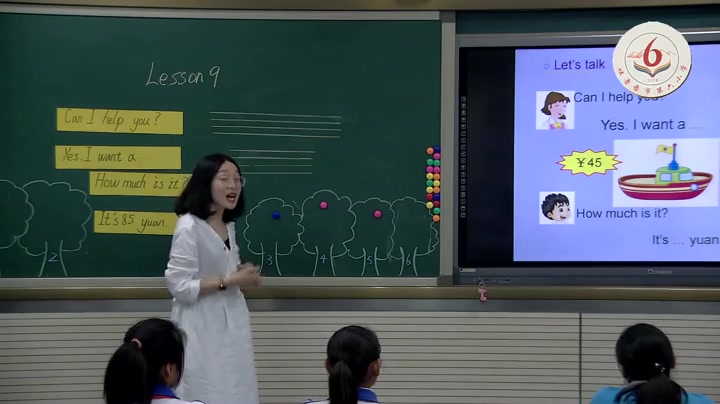 Lesson 9
Can I help you?
Yes. I want a ...
How much is it?
It's 85 yuan.
2
3
4
5
6
Let's talk
Can I help you?
Yes. I want a ...
￥45
How much is it?
It's ... yuan
6